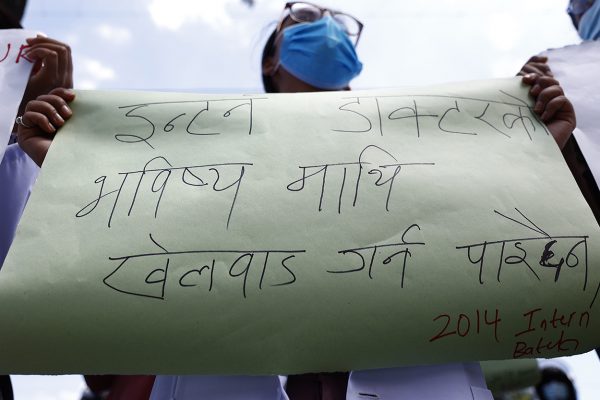 इन्टर्न डाक्टरको
भविष्य माथि
खेलवाड गर्न पाइदैन
2014 Intern
Batch